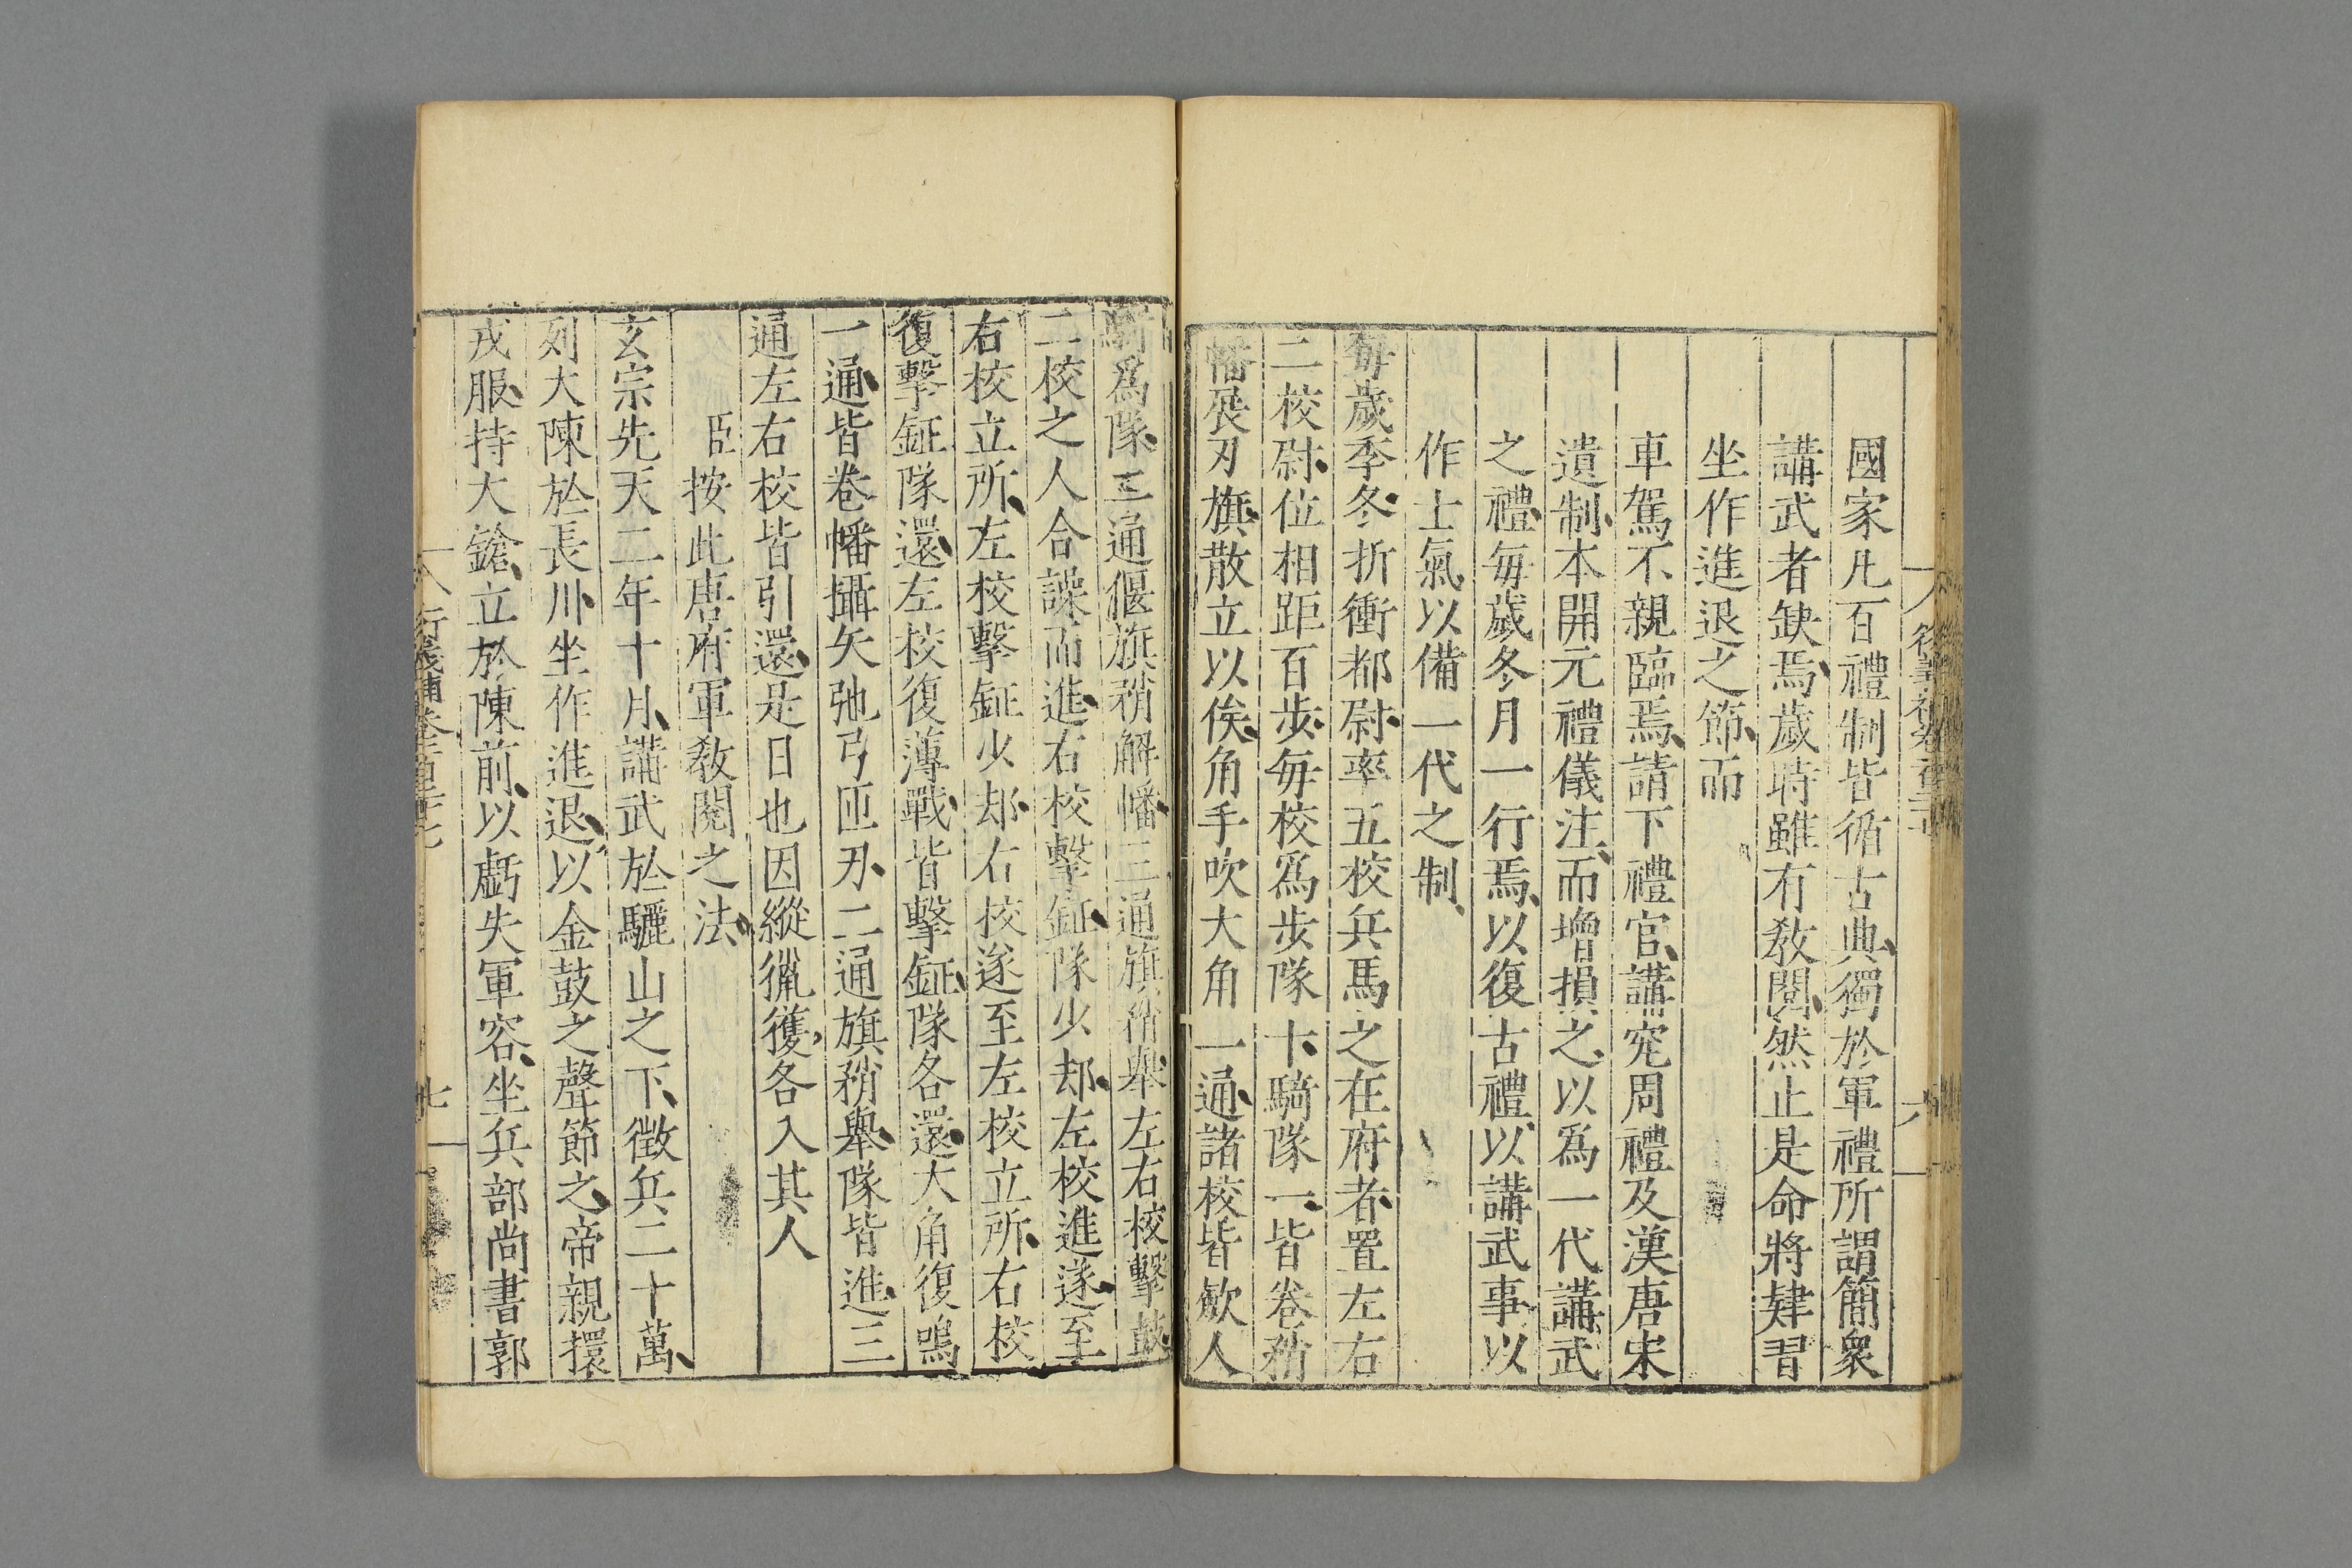 國家凡百禮制皆循古典、獨於軍禮所謂簡衆
講武者缺焉、歲時雖有敎閱、然止是命將肄習
坐作進退之節、而
車駕不親臨焉、請下禮官、講究周禮及漢唐宋
遺制、本開元禮儀注、而增損之、以爲一代講武
之禮、每歲冬月一行焉、以復古禮、以講武事、以
作士氣、以備一代之制、
每歲季冬、折衝都尉、率五校兵馬之在府者、置左右
二校尉、位相距百步、每校爲步隊十、騎隊一、皆卷矟
幡、展刃旗、散立以俟、角手吹大角一通、諸校皆斂人
騎爲隊、二通偃旗矟解幡、三通旗矟舉、左右校擊鼓
二校之人合譟而進、右校擊鉦、隊少却、左校進逐至
右校立所、左校擊鉦少却、右校逐至左校立所、右校
復擊鉦、隊還、左校復薄戰、皆擊鉦、隊各還、大角復鳴
一通、皆卷幡攝矢弛弓匣刃、二通旗矟舉、隊皆進、三
通左右校皆引還、是日也因縱獵、獲各入其人
臣按此唐府軍敎閱之法、
玄宗先天二年十月、講武於驪山之下、徵兵二十萬、
列大陳於長川、坐作進退、以金鼓之聲節之、帝親擐
戎服、持大鎗、立於陳前、以虧失軍容、坐兵部尚書郭
衍義補卷一百十七
七